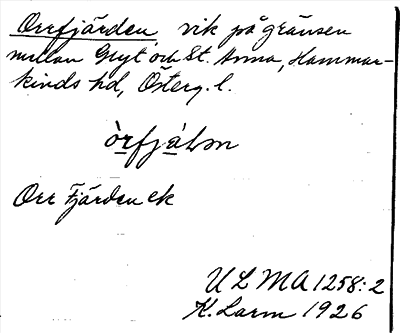 Orrfjärden, vik på gränsen
mellan Gryt och St. Anna, Hammar-
kinds hd, Österg. l.
Orr Fjärden ek
ULMA 1258:2
K. Larm 1926